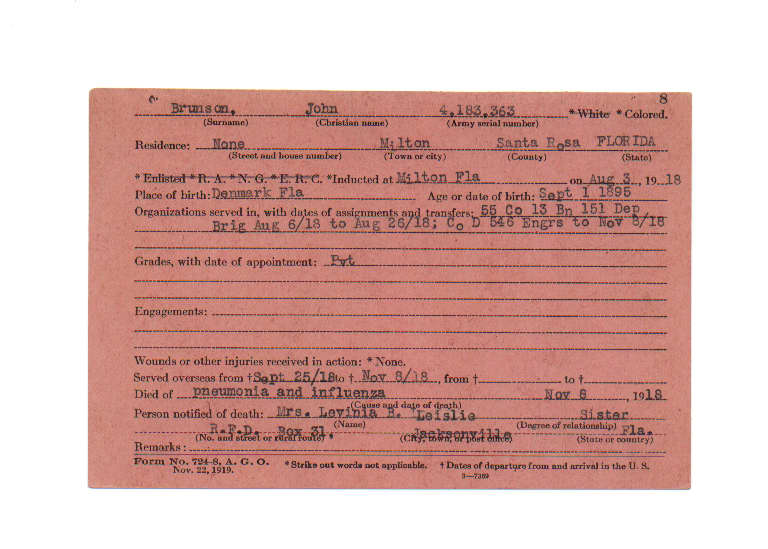 8
Brunson, John 4,183,363 * White * Colored.
(Surname) (Christian name) (Army serial number)
Residence: None Milton Santa Rosa FLORIDA
(Street and house number) (Town or city) (County) (State)
* Enlisted * R. A. * N. G. * E. R. C. * Inducted at Milton Fla on Aug 3, 1918
Place of birth: Denmark Fla Age or date of birth: Sept 1 1895
Organizations served in, with dates of assignments and transfers: 55 Co 13 Bn 151 Dep
Brig Aug 6/18 to Aug 26/18; Co D 546 Engrs to Nov 8/18
Grades, with date of appointment: Pvt
Engagements:
Wounds or other injuries received in action: * None.
Served overseas from † Sept 25/18 to † Nov 8/18, from † to †
Died of pneumonia and influenza Nov 8, 1918
(Cause and date of death)
Person notified of death: Mrs. Levinia B. Leislie Sister
(Name) (Degree of relationship)
R.F.D. Box 31, Jacksonville Fla.
(No. and street or rural route) (City, town, or post office) (State or country)
Remarks:
Form No. 724-8, A. G. O. * Strike out words not applicable. † Dates of departure from and arrival in the U. S.
Nov. 22, 1919. 3—7369